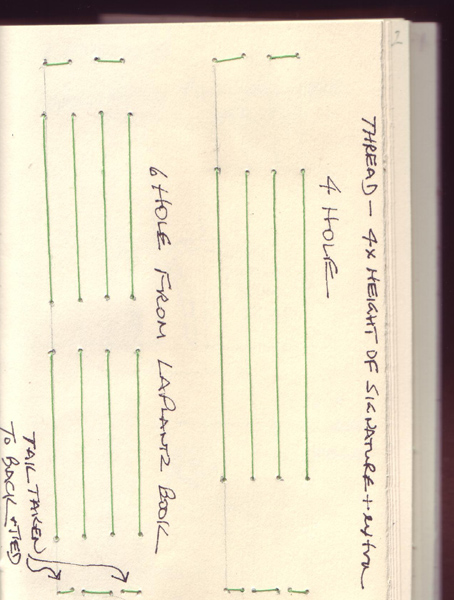 2
THREAD - 4X HEIGHT OF SIGNATURE + extra
4 HOLE
6 HOLE FROM LAPLANTZ BOOK
TAIL TAKEN
TO BACK + TIED